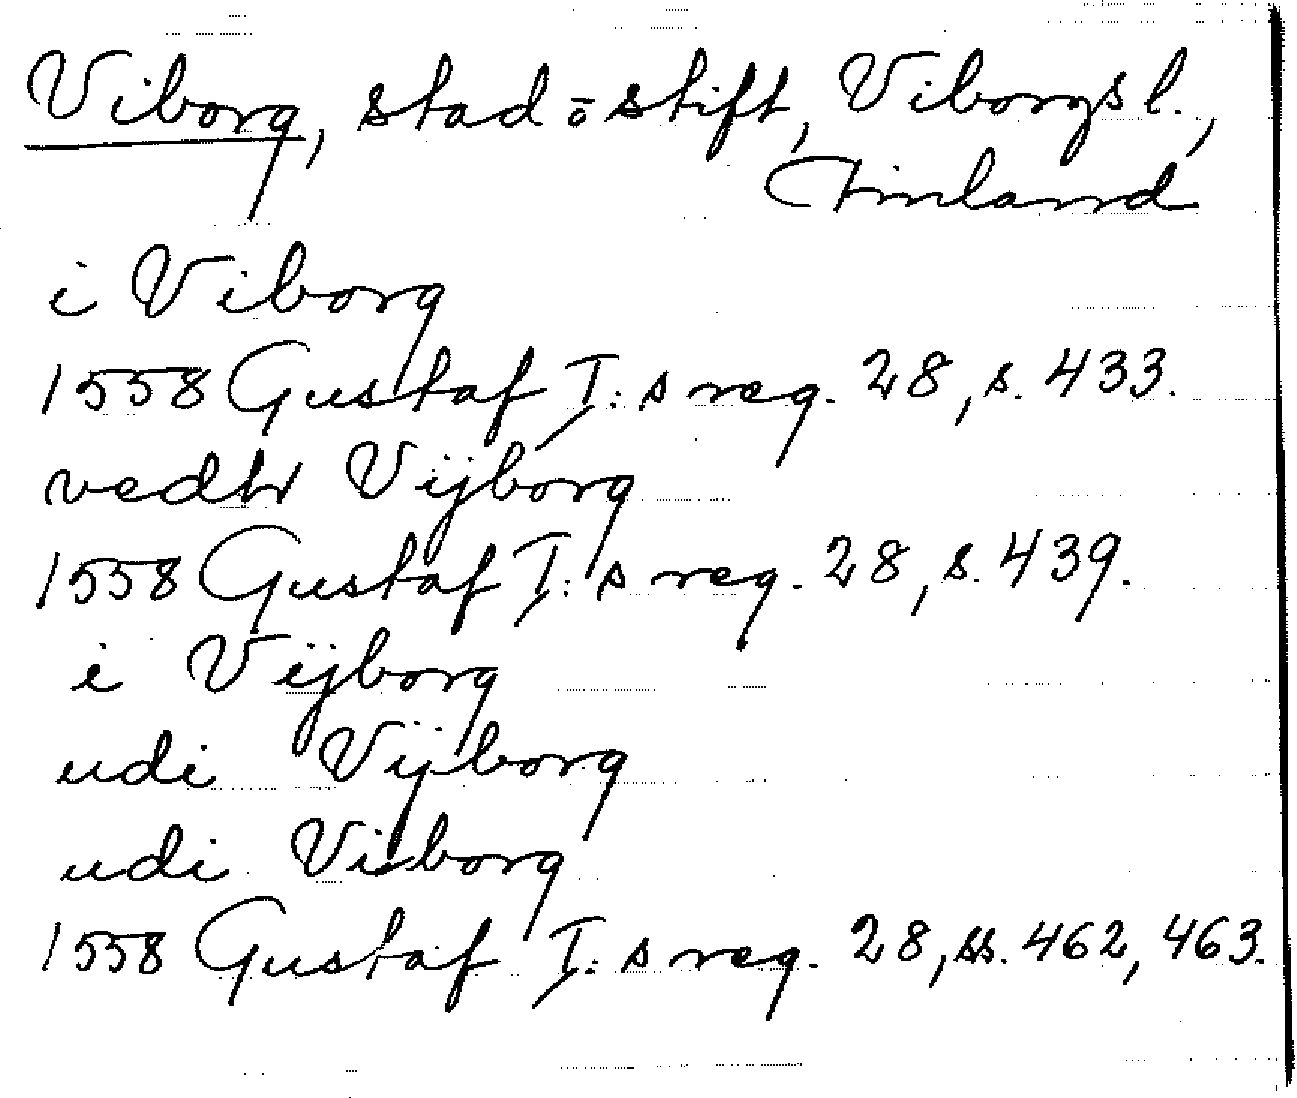 Viborg, stad o stift, Viborgs l.,
Finland
i Viborg
1558 Gustaf I:s reg. 28, s. 433.
vedh Vijborg
1558 Gustaf I:s reg. 28, s. 439.
i Vijborg
udi Vijborg
udi Viborg
1558 Gustaf I:s reg. 28, ss. 462, 463.